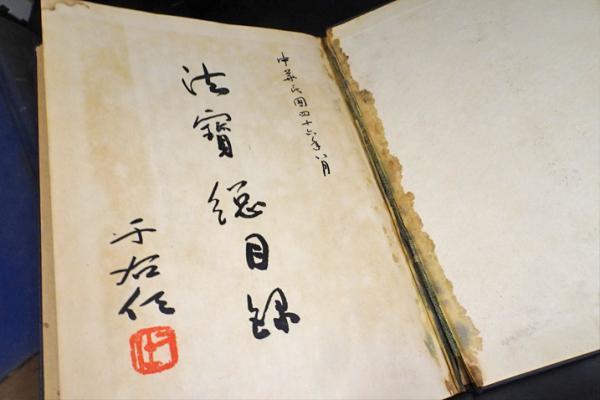 中華民國四十六年八月
法寶總目錄
于右任